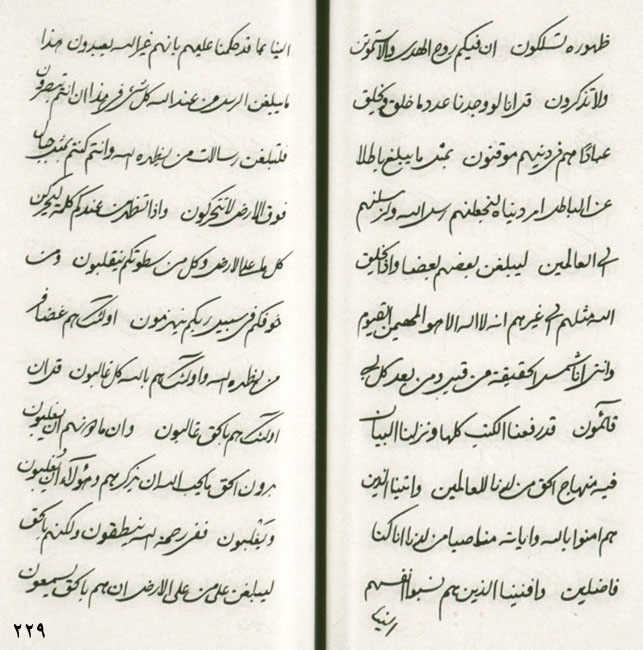 ظهوره تسلكون ان فيكم روح الهدى وانتم
ولا تذكرون قد انا لو وجدنا عدد ما خلق ويخلق
عبادا هم في دينهم موقنون بمثل ما يبلغ باطلا
عن الباطل امر دنياه لنجعلنهم رسل الله ولنرسلنهم
الى العالمين ليبلغن بعضهم بعضا واذا يخلق
الله مثلهم الى غيرهم انه لا اله الا هو المهيمن القيوم
وانني انا شمس الحقيقة من قبل ومن بعد كل بي
قائمون قد رفعنا الكتب كلها ونزلنا البيان
فيه منهاج الحق من لدنا للعالمين واثبتنا الذين
هم امنوا بالله واياته من لدنا انا كنا
فاضلين وافنينا الذين هم نسبوا انفسهم
الينا
الينا بما قد حكمنا عليهم بانهم غير الله يعبدون هذا
ما يبلغن الرسل من عند الله كل شيء في هذا ان انتم تبصرون
فلتبلغن رسالات من يظهره الله وانتم كنتم بمثل جبال
فوق الارض لا تتحركون واذا تنطق من عندكم كلمة ليتحركن
كل ما على الارض وكل من سطوتكم ينقلبون ومن
خوفكم في سبيل ربكم ينهزمون اولئك هم
من يظهره الله واولئك هم بالله كل غالبون قل ان
اولئك هم بالحق غالبون وان ما دونهم ان يغلبون
برون الحق يحب الله ان يذكرهم وهؤلاء ان يغلبون
ويغلبون ففي رحمة الله ينطقون ولكنهم بالحق
ليبلغن على من على الارض ان هم بالحق يسمعون
٢٢٩